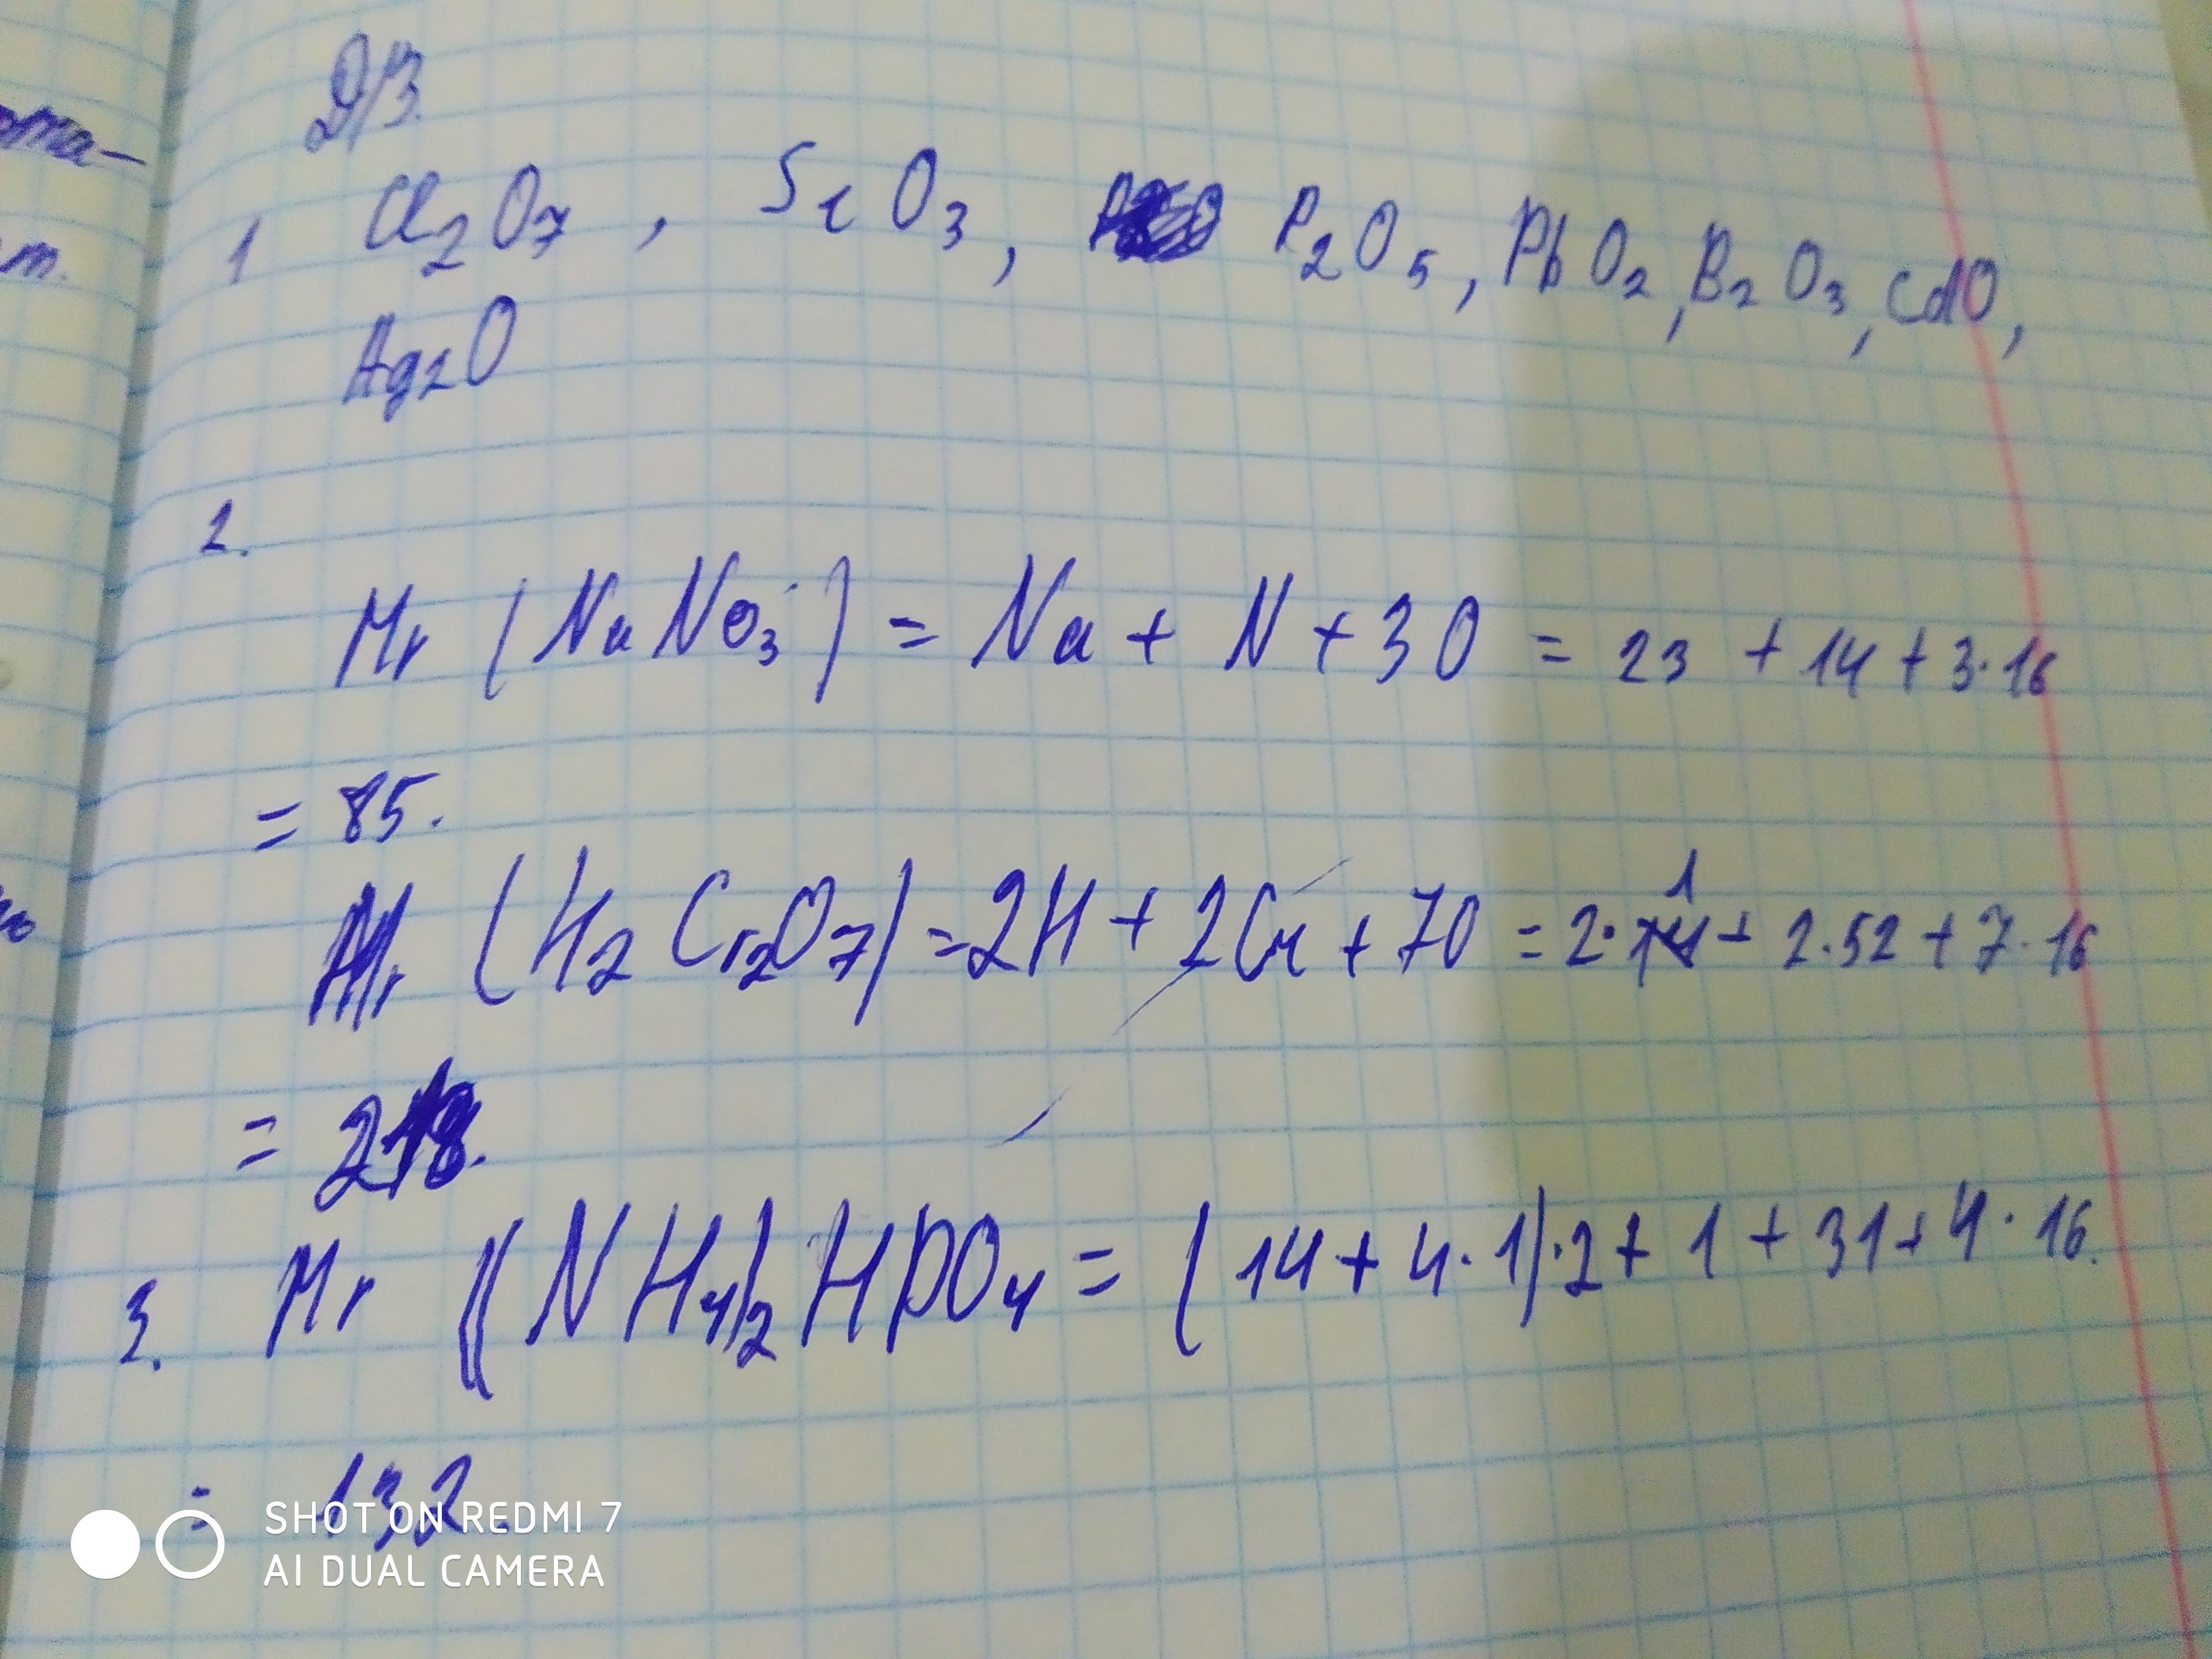 Д/З.
1 Cl₂O₇, SeO₃, P₂O₅, PbO₂, B₂O₃, CdO,
Ag₂O
2.
Mr (NaNO₃) = Na + N + 3O = 23 + 14 + 3·16
= 85.
Mr (H₂Cr₂O₇) = 2H + 2Cr + 7O = 2·1 + 2·52 + 7·16
= 218.
3. Mr ((NH₄)₂HPO₄ = (14 + 4·1)·2 + 1 + 31 + 4·16.
= 132.
SHOT ON REDMI 7
AI DUAL CAMERA
ота-
т.